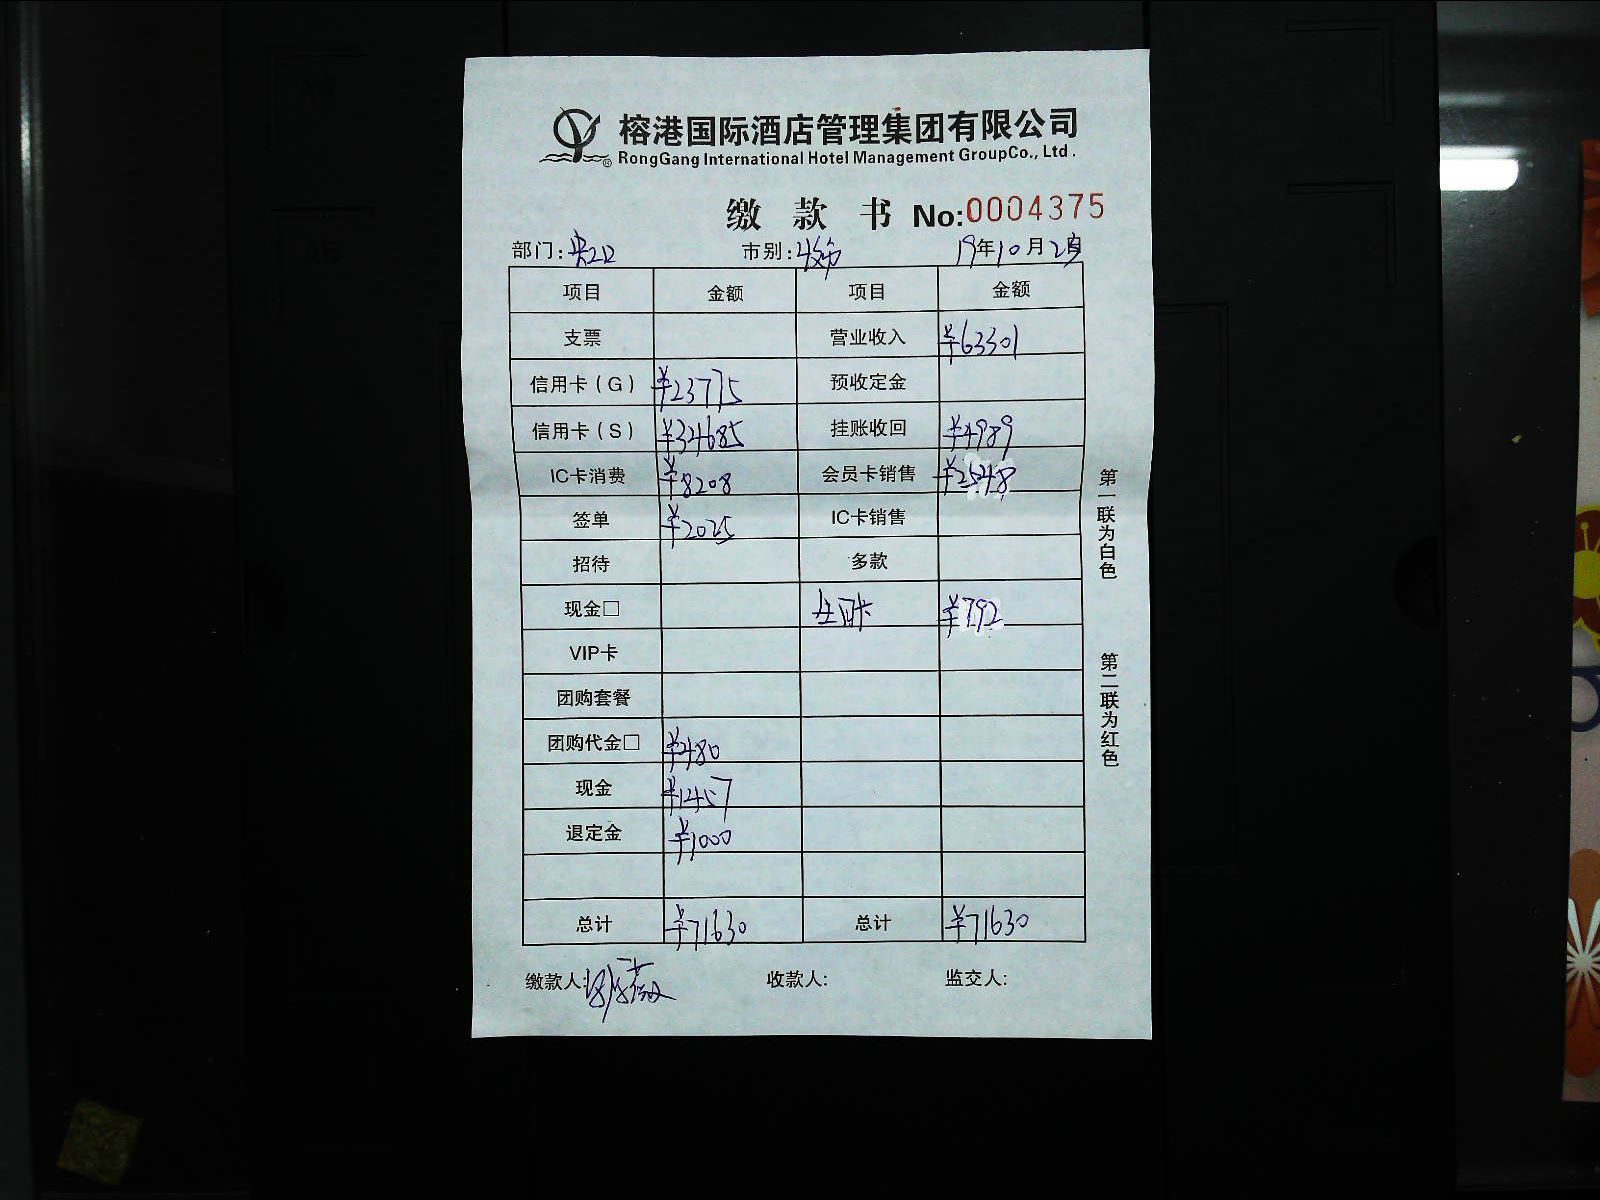 榕港国际酒店管理集团有限公司
RongGang International Hotel Management GroupCo., Ltd.
缴款书 No:0004375
部门: 市别: 19年10月 日
项目 金额 项目 金额
支票 营业收入 ¥63301
信用卡(G) ¥23775 预收定金
信用卡(S) ¥34685 挂账收回 ¥4989
IC卡消费 ¥8208 会员卡销售 ¥2548
签单 ¥2025 IC卡销售
招待 多款
现金□ ¥792
VIP卡
团购套餐
团购代金□ ¥480
现金 ¥1457
退定金 ¥1000
总计 ¥71630 总计 ¥71630
缴款人: 收款人: 监交人:
第一联为白色
第二联为红色